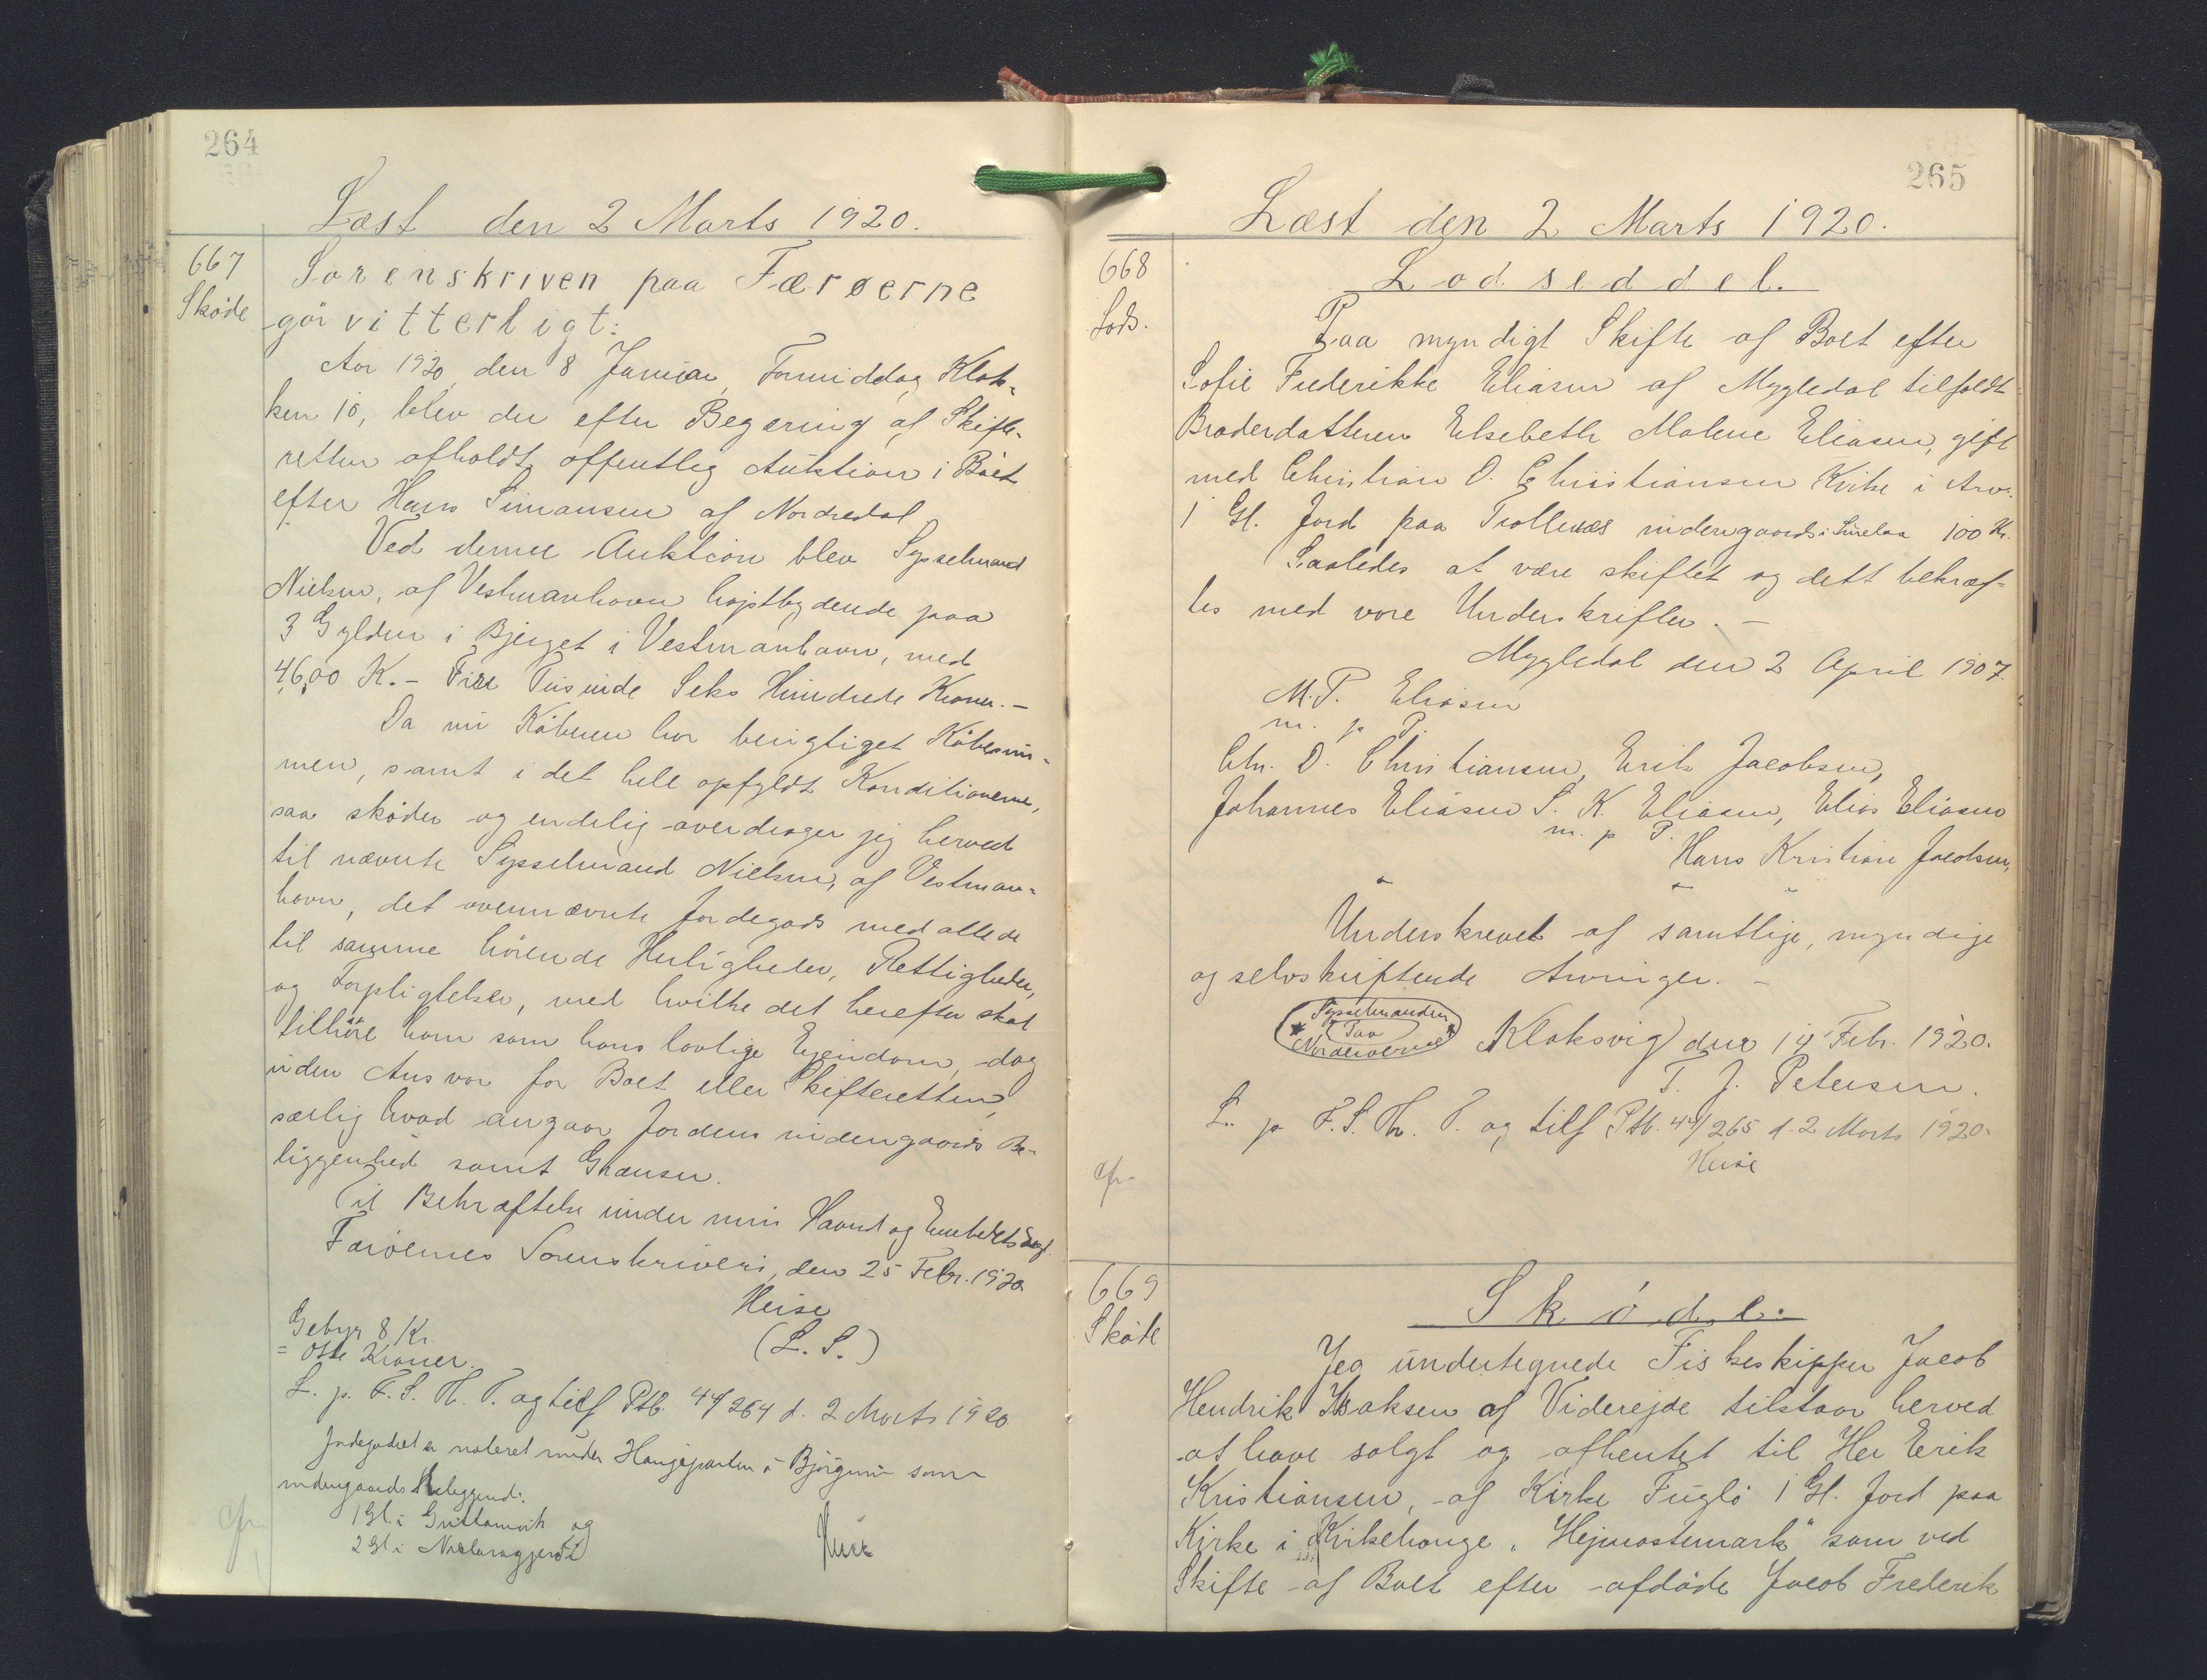 264
Læst den 2 Marts 1920.
667
Skøde
Sorenskriven paa Færøerne
gør vitterligt:
Aar 1920, den 8 Januar, Formiddag Klok-
ken 10, blev der efter Begæring af Skifte-
retten afholdt offentlig Auktion i Boet
efter Hans Simonsen af Nordredal
Ved denne Auktion blev Sysselmand
Nielsen, af Vestmanhavn højstbydende paa
3 Gylden i Bjerget i Vestmanhavn, med
4600 K. - Fire Tusinde Seks Hundrede Kroner. -
Da nu Køberen har berigtiget Købesum-
men, samt i det hele opfyldt Konditionerne,
saa skøder og endelig overdrager jeg herved
til nævnte Sysselmand Nielsen, af Vestman-
havn, det ovennævnte Jordegods med alle de
til samme hørende Herligheder, Rettigheder,
og Forpligtelser, med hvilke det herefter skal
tilhøre ham som hans lovlige Ejendom, dog
uden Ansvar for Boet eller Skifteretten,
særlig hvad angaar Jordens indengaards Be-
liggenhed samt Grænser.
Til Bekræftelse under min Haand og Embedssegl
Færøernes Sorenskriveri, den 25 Febr. 1920
Heise
(L. S.)
Gebyr 8 Kr.
= Otte Kroner.
L. p. F. S. Th. T. og tilf Ptb. 44/264 d. 2 Marts 1920
Jordegodset er noteret under Haugeparten i Bjørgum som
indengaards Beliggende:
1 Gl. i og
2 Gl. i
Heise
cfr.
265
Læst den 2 Marts 1920.
668
Lods.
Lodseddel.
Paa myndigt Skifte af Boet efter
Sofie Frederikke Eliasen af Mygledal tilfaldt
Broderdatteren Elsebeth Malene Eliasen, gift
med Christian D. Christiansen Kirke i Arv:
1 Gl. Jord paa Trollenæs indengaards i 100 Kr.
Saaledes at være skiftet og dett bekræf-
tes med vore Underskrifter. -
Mygledal den 2 April 1907.
M. P. Eliasen
m. p. P.
Chr. D. Christiansen, Erik Jacobsen,
Johannes Eliasen S. K. Eliasen, Elias Eliasen
m. p. P.
Hans Kristian Jacobsen,
Underskrevet af samtlige, myndige
og selvskiftende Arvinger. -
Sysselmanden
Paa
Norderøerne
Klaksvig den 14 Febr. 1920.
T. J. Petersen.
L. p. F. S. Th. T. og tilf Ptb. 44/265 d. 2 Marts 1920.
Heise
cfr.
669
Skøde
Skøde.
Jeg undertegnede Fiskeskipper Jacob
Hendrik Isaksen af Viderejde tilstaar herved
at have solgt og afhentet til Her Erik
Kristiansen, af Kirke Fuglø 1 Gl. Jord paa
Kirke i Kirkehauge, "Hejmastemark" som ved
Skifte af Boet efter afdøde Jacob Frederik